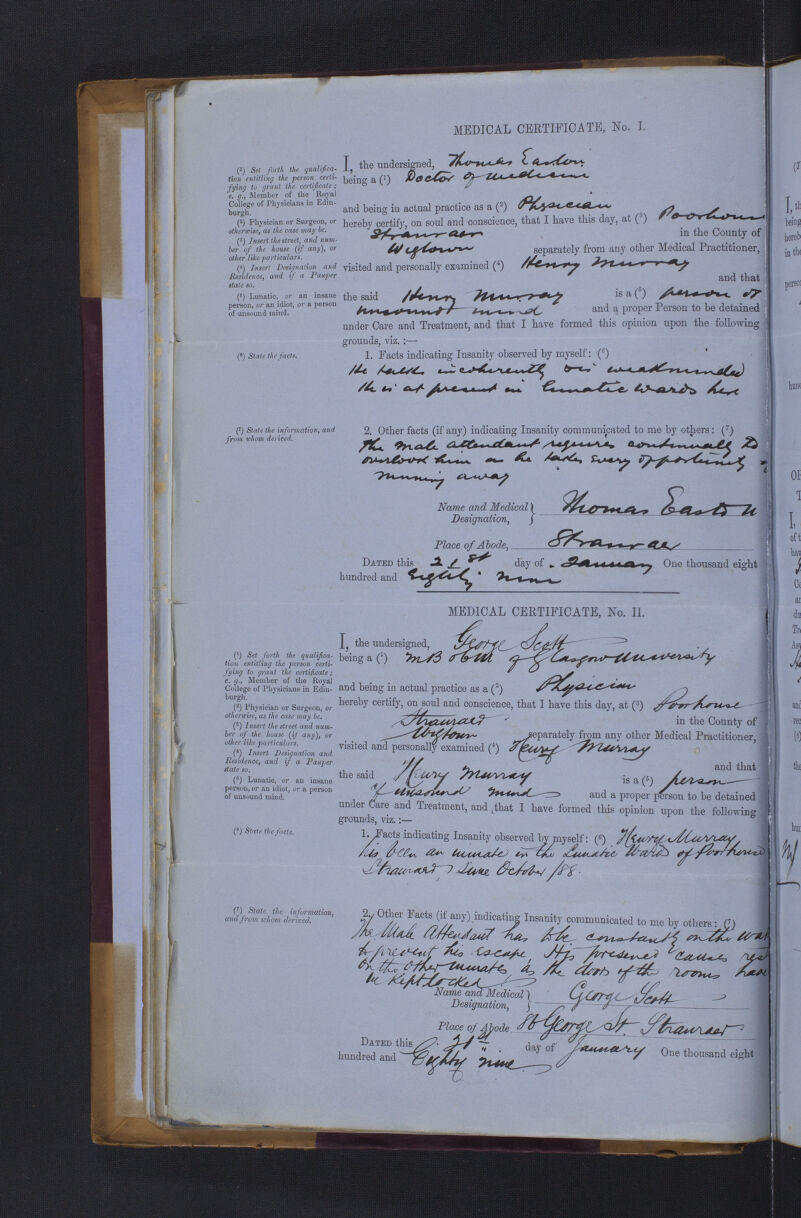 MEDICAL CERTIFICATE, No. I.
(¹) Set forth the qualifica-
tion entitling the person certi-
fying to grant the certificate;
e. g., Member of the Royal
College of Physicians in Edin-
burgh.
(²) Physician or Surgeon, or
otherwise, as the case may be.
(³) Insert the street, and num-
ber of the house (if any), or
other like particulars.
(⁴) Insert Designation and
Residence, and if a Pauper
state so.
(⁵) Lunatic, or an insane
person, or an idiot, or a person
of unsound mind.
I, the undersigned, Thomas Easton
being a (¹) Doctor of Medicine
and being in actual practice as a (²) Physician
hereby certify, on soul and conscience, that I have this day, at (³) Poorhouse
Stranraer in the County of
Wigtown separately from any other Medical Practitioner,
visited and personally examined (⁴) Henry Murray
and that
the said Henry Murray is a (⁵) person of
unsound mind and a proper Person to be detained
under Care and Treatment, and that I have formed this opinion upon the following
grounds, viz. :—
(⁶) State the facts.
1. Facts indicating Insanity observed by myself: (⁶)
He talks incoherently is weakminded
He is at present in lunatic wards here
(⁷) State the information, and
from whom derived.
2. Other facts (if any) indicating Insanity communicated to me by others: (⁷)
The male attendant requires continually to
overlook him as he takes every opportunity of
running away
Name and Medical
Designation, Thomas Easton
Place of Abode, Stranraer
DATED this 21st day of January One thousand eight
hundred and Eighty nine
MEDICAL CERTIFICATE, No. II.
(¹) Set forth the qualifica-
tion entitling the person certi-
fying to grant the certificate;
e. g., Member of the Royal
College of Physicians in Edin-
burgh.
(²) Physician or Surgeon, or
otherwise, as the case may be.
(³) Insert the street and num-
ber of the house (if any), or
other like particulars.
(⁴) Insert Designation and
Residence, and if a Pauper
state so.
(⁵) Lunatic, or an insane
person, or an idiot, or a person
of unsound mind.
I, the undersigned, George Scott
being a (¹) MB & CM of Glasgow University
and being in actual practice as a (²) Physician
hereby certify, on soul and conscience, that I have this day, at (³) Poorhouse
Stranraer in the County of
Wigtown separately from any other Medical Practitioner,
visited and personally examined (⁴) Henry Murray
and that
the said Henry Murray is a (⁵) person
of unsound mind and a proper person to be detained
under Care and Treatment, and that I have formed this opinion upon the following
grounds, viz. :—
(⁶) State the facts.
1. Facts indicating Insanity observed by myself: (⁶) Henry Murray
has been an inmate in the Lunatic Wards of Poorhouse
Stranraer since October /88.
(⁷) State the information,
and from whom derived.
2. Other Facts (if any) indicating Insanity communicated to me by others: (⁷)
The Male Attendant has to be constantly on the
to prevent his escape. His presence causes
on the other inmates as the doors of the rooms have
be kept locked
Name and Medical
Designation, George Scott
Place of Abode St George St. Stranraer
DATED this 21st day of January One thousand eight
hundred and Eighty nine